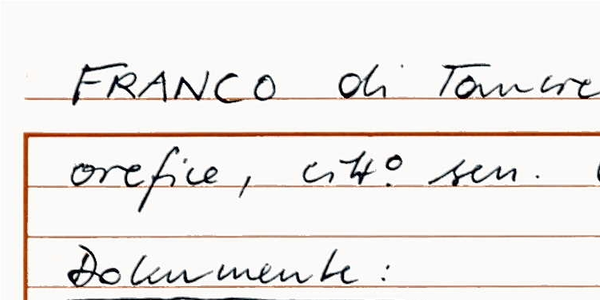 FRANCO di Tancre
orefice, citt.º sen.
Dokumente: